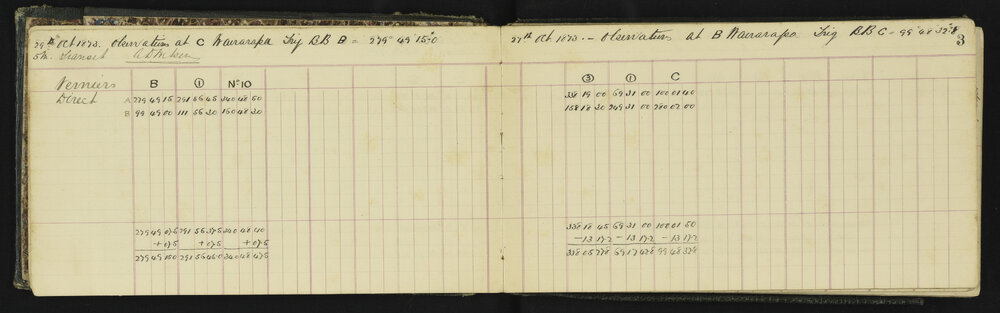 29th Oct 1873. Observations at C Wairarapa Trig BB B = 279° 49' 15"0
5 in. Transit
Verniers B ① No 10
Direct A 279 49 15 291 56 45 340 48 50
B 99 49 00 111 56 30 160 48 30
279 49 07.5 291 56 37.5 340 48 40
+07.5 +07.5 +07.5
279 49 15.0 291 56 45.0 340 48 47.5
27th Oct 1873. - Observations at B Wairarapa Trig BB C = 99° 48' 32"8
3
③ ① C
338 19 00 69 31 00 100 01 40
158 18 30 249 31 00 280 02 00
338 18 45 69 31 00 100 01 50
-13 17.2 -13 17.2 -13 17.2
338 05 27.8 69 17 42.8 99 48 32.8